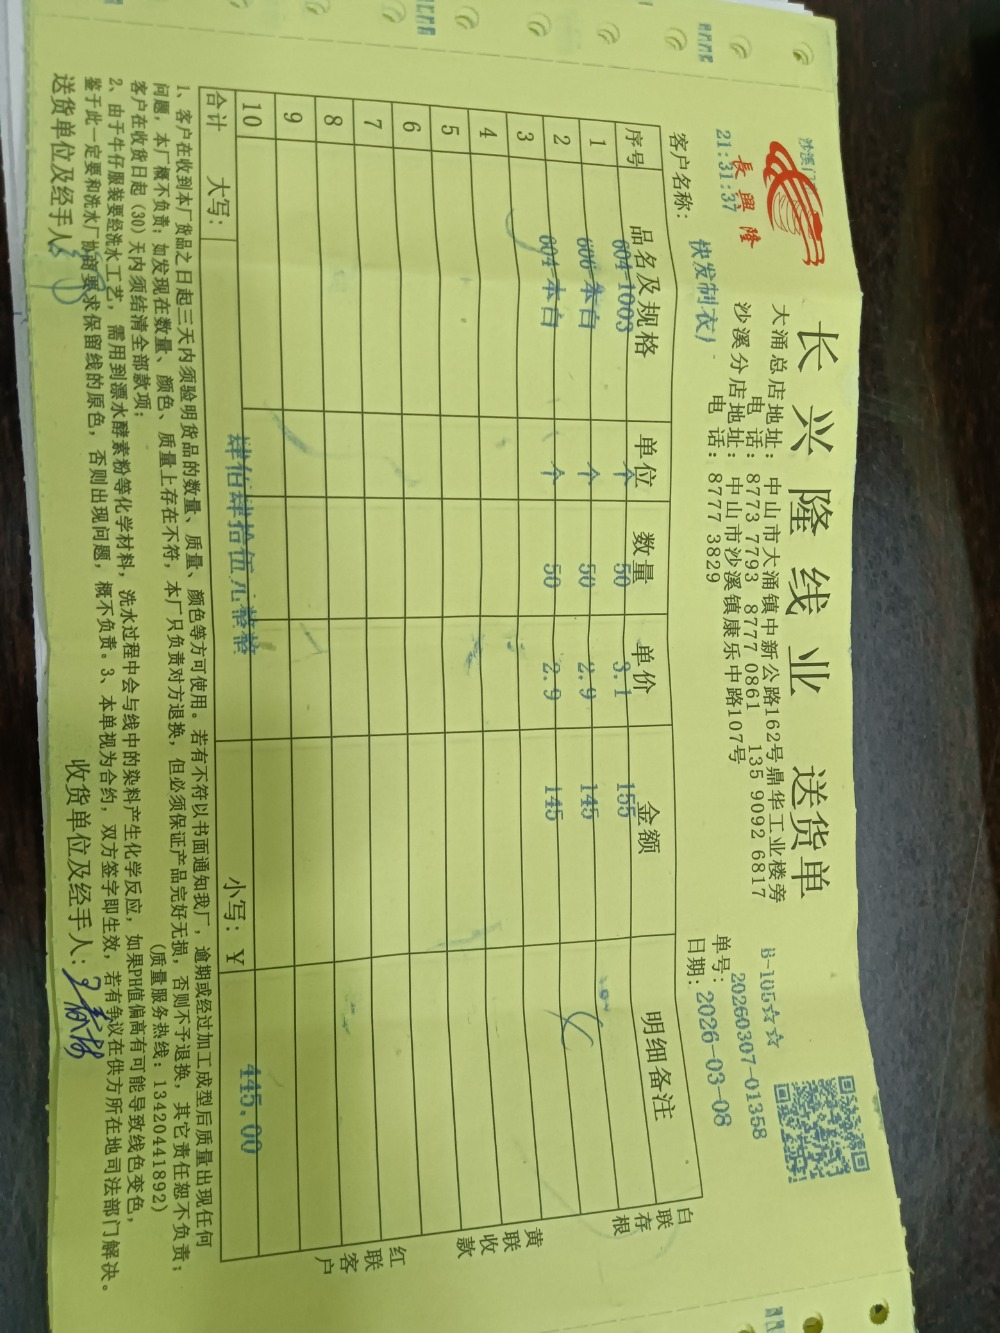 沙溪门
長興隆
21:31:37
长兴隆线业 送货单
大涌总店地址: 中山市大涌镇中新公路162号鼎华工业楼旁
电 话: 8773 7793 8777 0861 135 9092 6817
沙溪分店地址: 中山市沙溪镇康乐中路107号
电 话: 8777 3829
B-105☆☆
单号: 20260307-01358
日期: 2026-03-08
客户名称: 快发制衣厂
序号 品名及规格 单位 数量 单价 金额 明细备注
1 604-1003 个 50 3.1 155
2 606-本白 个 50 2.9 145
3 604-本白 个 50 2.9 145
4
5
6
7
8
9
10
合计 大写: 肆佰肆拾伍元整 小写: ¥ 445.00
白联存根
黄联收款
红联客户
1、客户在收到本厂货品之日起三天内须验明货品的数量、质量、颜色等方可使用。若有不符以书面通知我厂，逾期或经过加工成型后质量出现任何
问题，本厂概不负责；如发现在数量、颜色、质量上存在不符，本厂只负责对方退换，但必须保证产品完好无损，否则不予退换，其它责任恕不负责；
客户在收货日起（30）天内须结清全部款项； (质量服务热线: 13420441892)
2、由于牛仔服装要经洗水工艺，需用到漂水酵素粉等化学材料，洗水过程中会与线中的染料产生化学反应，如果PH值偏高有可能导致线色变色，
鉴于此一定要和洗水厂协商要求保留线的原色，否则出现问题，概不负责。3、本单视为合约，双方签字即生效，若有争议在供方所在地司法部门解决。
送货单位及经手人: 收货单位及经手人: